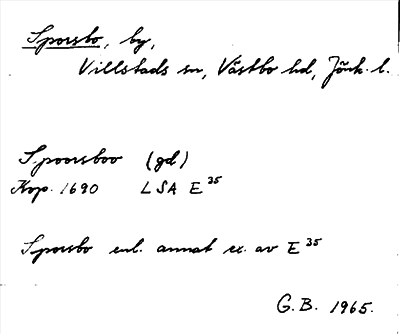 Sporsbo, by,
Villstads sn, Västbo hd, Jönk. l.
Spoorsboo (gd)
Kop. 1690 LSA E 35
Sporsbo enl. annat ex. av E 35
G.B. 1965.